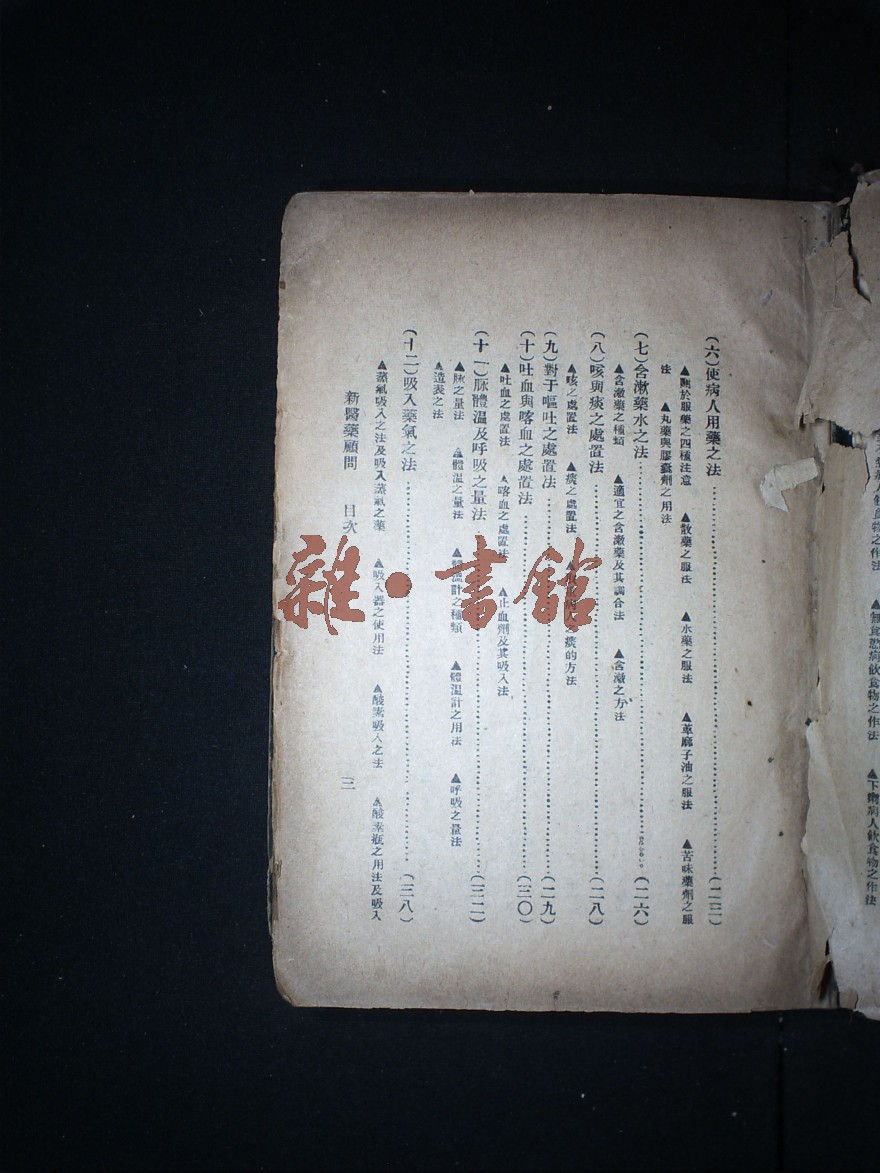 (六)使病人用藥之法……(二二)
▲關於服藥之四種注意 ▲散藥之服法 ▲水藥之服法 ▲萆麻子油之服法 ▲苦味藥劑之服
法 ▲丸藥與膠囊劑之用法
(七)含漱藥水之法……(二六)
▲含漱藥之種類 ▲適宜之含漱藥及其調合法 ▲含漱之方法
(八)咳與痰之處置法……(二八)
▲咳之處置法 ▲痰之處置法 ▲痰的方法
(九)對于嘔吐之處置法……(二九)
(十)吐血與喀血之處置法……(三〇)
▲吐血之處置法 ▲喀血之處置法 ▲止血劑及其吸入法
(十一)脈體溫及呼吸之量法……(三二)
▲脈之量法 ▲體溫之量法 ▲體溫計之種類 ▲體溫計之用法 ▲呼吸之量法
▲造表之法
(十二)吸入藥氣之法……(三八)
▲蒸氣吸入之法及吸入蒸氣之藥 ▲吸入器之使用法 ▲酸素吸入之法 ▲酸素瓶之用法及吸入
新醫藥顧問 目次 三
雜·書館
病人飲食物之作法 ▲無食慾病飲食物之作法 ▲下痢病人飲食物之作法